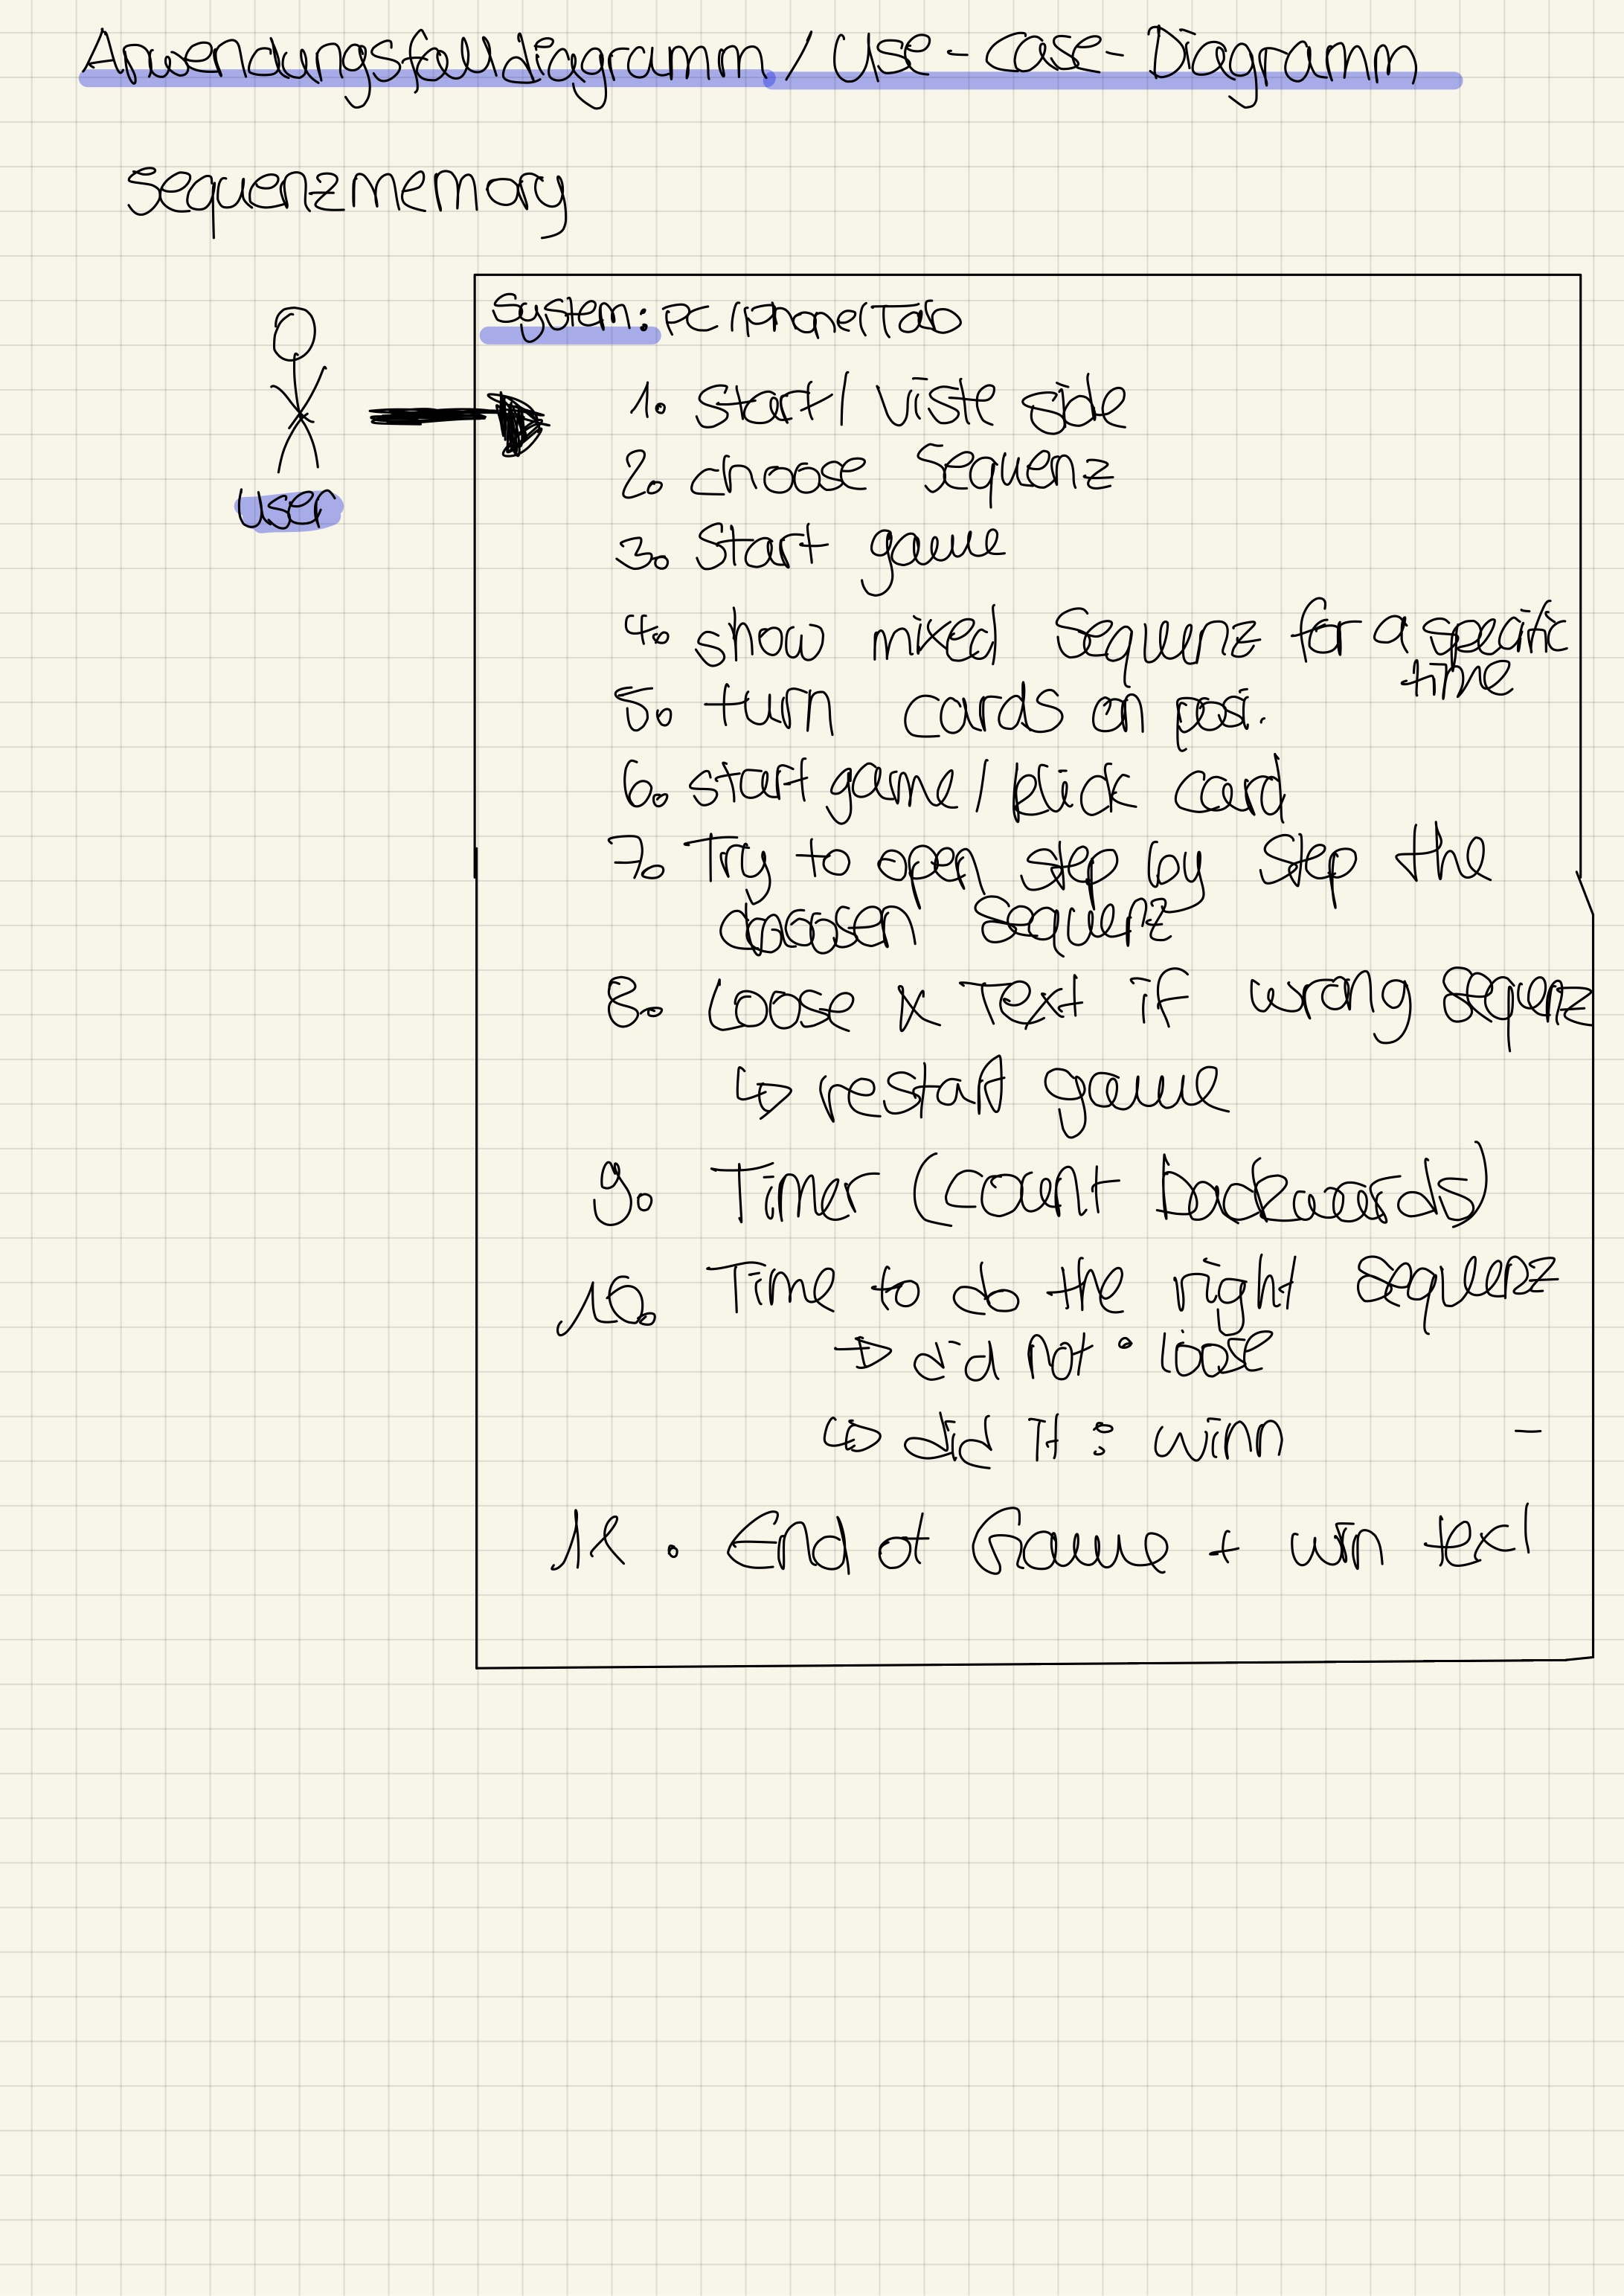 Anwendungsfalldiagramm / Use-Case-Diagramm
Sequenzmemory
System: PC/Phone/Tab
User
1. Start/ Viste side
2. choose Sequenz
3. Start game
4. show mixed Sequenz for a specific
time
5. turn cards on posi.
6. start game / klick card
7. Try to open step by step the
choosen sequenz
8. Loose & Text if wrong sequenz
↳ restart game
9. Timer (count backwards)
10. Time to do the right sequenz
→ did not: loose
↳ did it: winn -
11. End of Game + win text